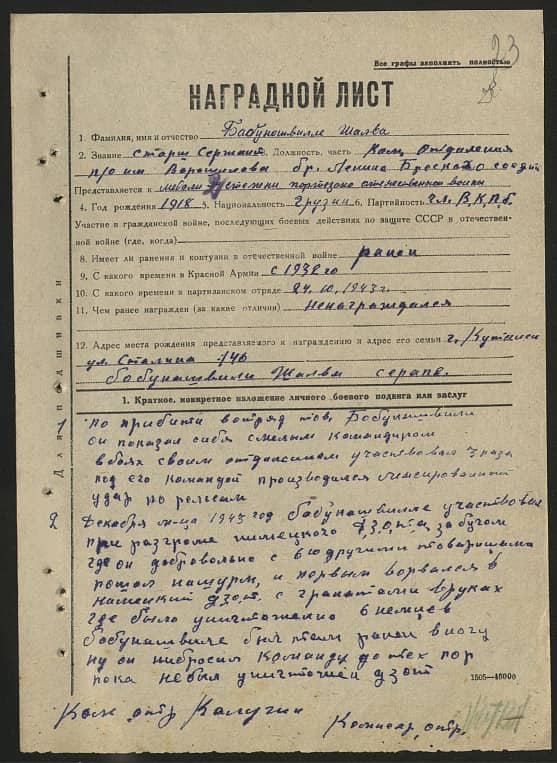 23
Все графы заполнять полностью
НАГРАДНОЙ ЛИСТ
1. Фамилия, имя и отчество Бабунашвилле Шалва
2. Звание старш Сержант 3. Должность, часть Ком. отделения
п/о им Ворошилова бр. Ленина Брестского соедин
Представляется к медали партизана отечественной войны
4. Год рождения 1918 5. Национальность Грузин 6. Партийность чл. В.К.П.б.
Участие в гражданской войне, последующих боевых действиях по защите СССР в отечествен-
ной войне (где, когда)
8. Имеет ли ранения и контузии в отечественной войне ранен
9. С какого времени в Красной Армии с 1938 го
10. С какого времени в партизанском отряде 24.10.1943 г.
11. Чем ранее награжден (за какие отличия) ненаграждался
12. Адрес места рождения представляемого к награждению и адрес его семьи г. Кутаиси
ул. Сталина 146
бобунашвили Шалви серапе.
Для подшивки
1. Краткое, конкретное изложение личного боевого подвига или заслуг
1 по прибити вотряд тов. Бобунашвили
он показал себя смелым командиром
вбоях своим отделением участвовал 3 раза
под его командой производился
удар по рельсам
2 Декабря м-ца 1943 год бобунашвилле участвовал
при разгроме немецкого Дзота за бугом
где он добровольно с 6ю другими товарищами
пошол нашурм, и первым ворвался в
немецкий дзот с гранатами вруках
где было уничтожено 6 немцев
бобунашвиле был там ранен вногу
ну он небросил команду до тех пор
пока небыл уничтожен дзот
1505—40000
Ком отр Калугин
Комисар отр.